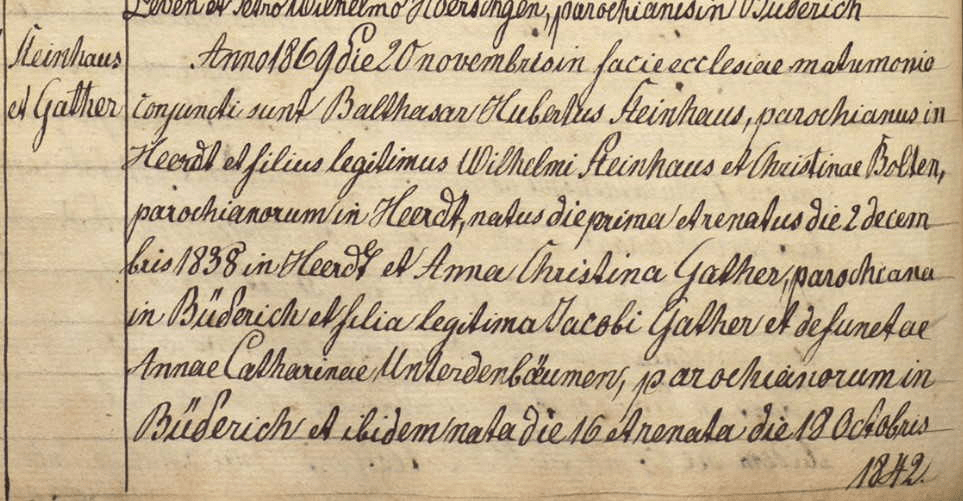 Leven et Petro Wilhelmo Hoerschgen, parochianis in Büderich
Steinhaus
et Gather
Anno 1869 die 20 novembris in facie ecclesiae matrimonio
conjuncti sunt Balthasar Hubertus Steinhaus, parochianus in
Heerdt et filius legitimus Wilhelmi Steinhaus et Christinae Bolten,
parochianorum in Heerdt, natus die prima et renatus die 2 decem
bris 1838 in Heerdt et Anna Christina Gather, parochiana
in Büderich et filia legitima Jacobi Gather et defunctae
Annae Catharinae Unterdenbäumen, parochianorum in
Büderich et ibidem nata die 16 et renata die 18 Octobris
1842.